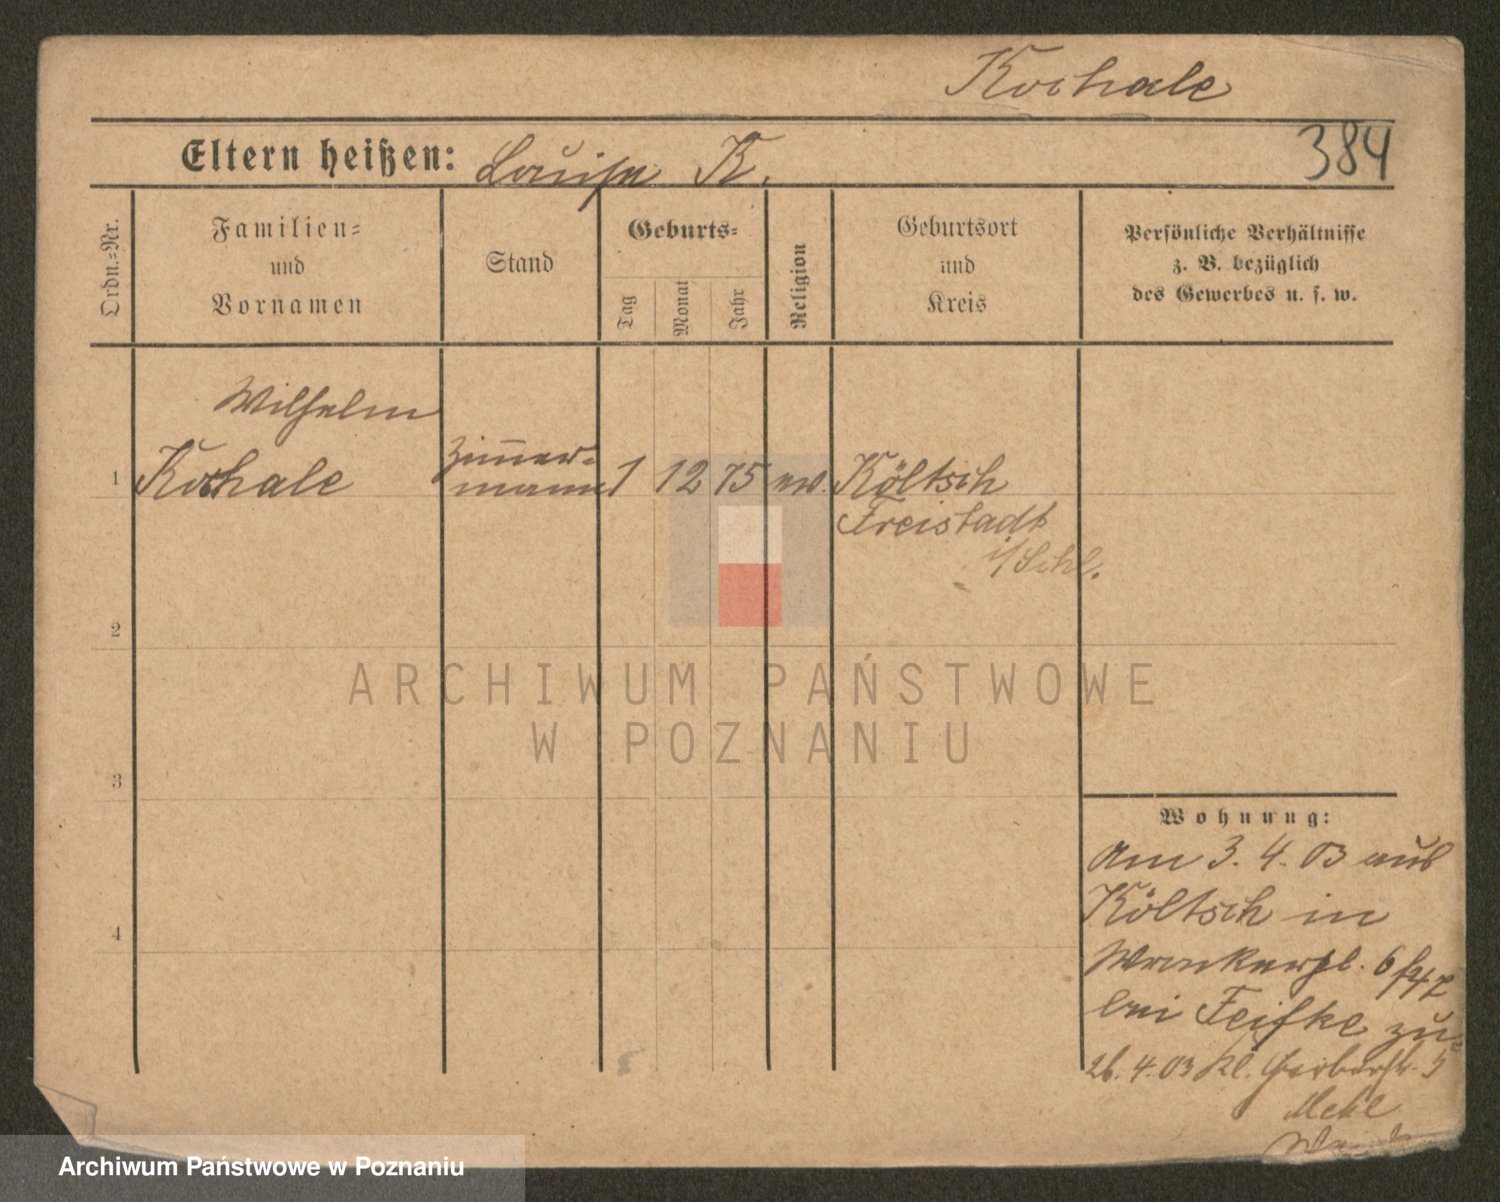 Kochale
384
Eltern heißen: Louise K.
Ordn.-Nr.
Familien-
und
Vornamen
Stand
Geburts-
Tag
Monat
Jahr
Religion
Geburtsort
und
Kreis
Persönliche Verhältnisse
z. B. bezüglich
des Gewerbes u. s. w.
Wilhelm
1 Kochale Zim̅er-
mann 1 12 75 ev. Költsch
Freistadt
i/Schl.
2
3
4
ARCHIWUM PAŃSTWOWE
W POZNANIU
Wohnung:
Am 3. 4. 03 aus
Költsch in
6
bei Feifke zu-
26. 4. 03 Kl. Gerberstr. 5
Archiwum Państwowe w Poznaniu